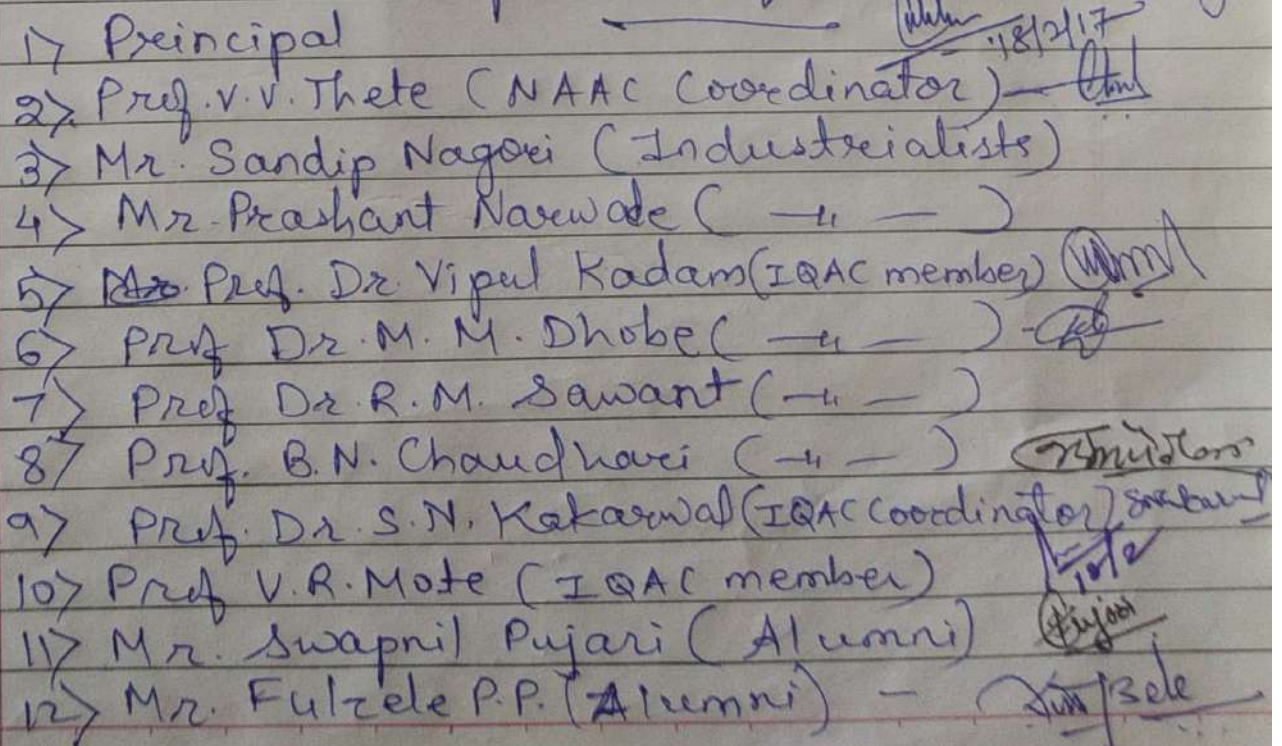 1) Principal
18/2/17
2) Prof. V. V. Thete (NAAC Coordinator) —
3) Mr. Sandip Nagori (Industrialists)
4) Mr. Prashant Narwade ( —〃— )
5) Prof. Dr. Vipul Kadam (IQAC member)
6) Prof Dr. M. M. Dhobe ( —〃— ) -
7) Prof Dr. R. M. Sawant ( —〃— )
8) Prof. B. N. Chaudhari ( —〃— )
9) Prof. Dr. S. N. Kakarwal (IQAC Coordinator)
10) Prof V. R. Mote (IQAC member)
11) Mr. Swapnil Pujari (Alumni)
12) Mr. Fulzele P. P. (Alumni) -